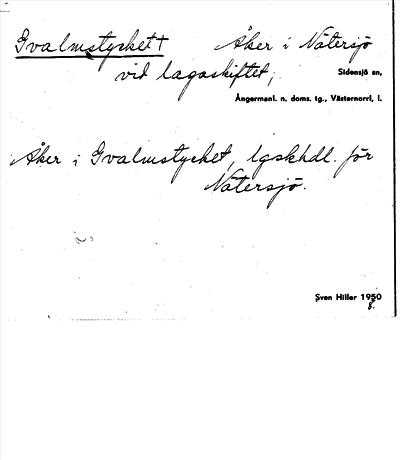 Gvalmstycket † Åker i Nätersjö
vid lagaskiftet,
Sidensjö sn,
Ångermanl. n. doms. tg., Västernorrl, l.
Åker i Gvalmstycket, lgskhdl. för
Nätersjö.
Sven Hiller 1950
8.